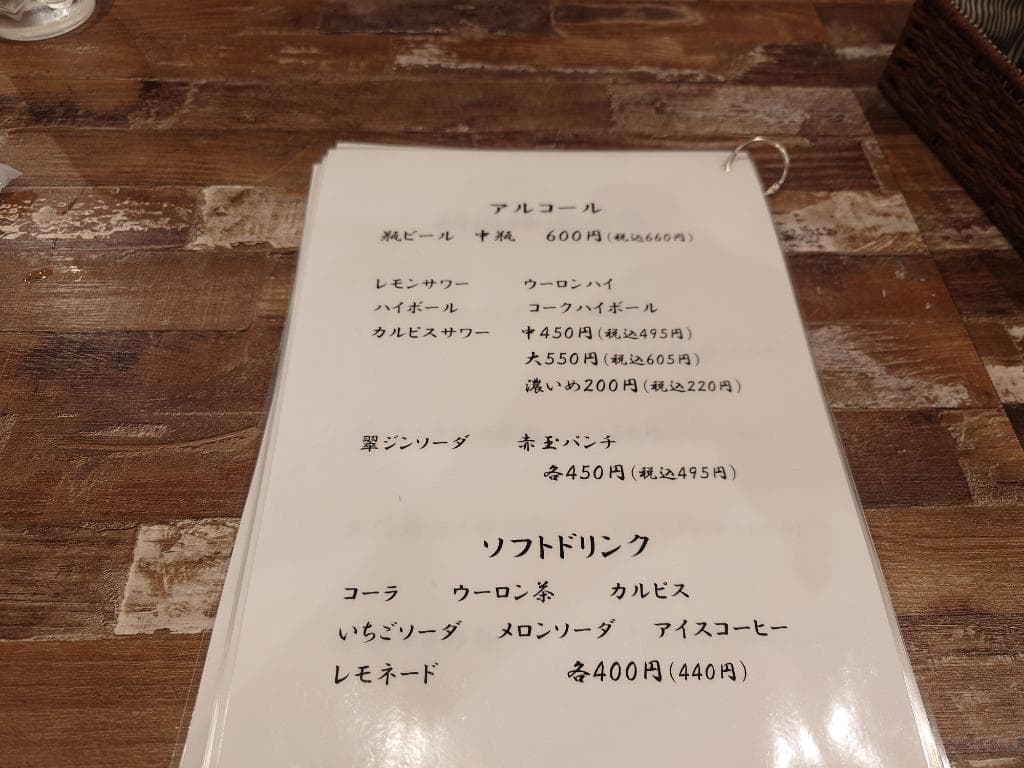 アルコール
瓶ビール 中瓶 600円(税込660円)
レモンサワー ウーロンハイ
ハイボール コークハイボール
カルピスサワー 中450円(税込495円)
大550円(税込605円)
濃いめ200円(税込220円)
翠ジンソーダ 赤玉パンチ
各450円(税込495円)
ソフトドリンク
コーラ ウーロン茶 カルピス
いちごソーダ メロンソーダ アイスコーヒー
レモネード 各400円(440円)